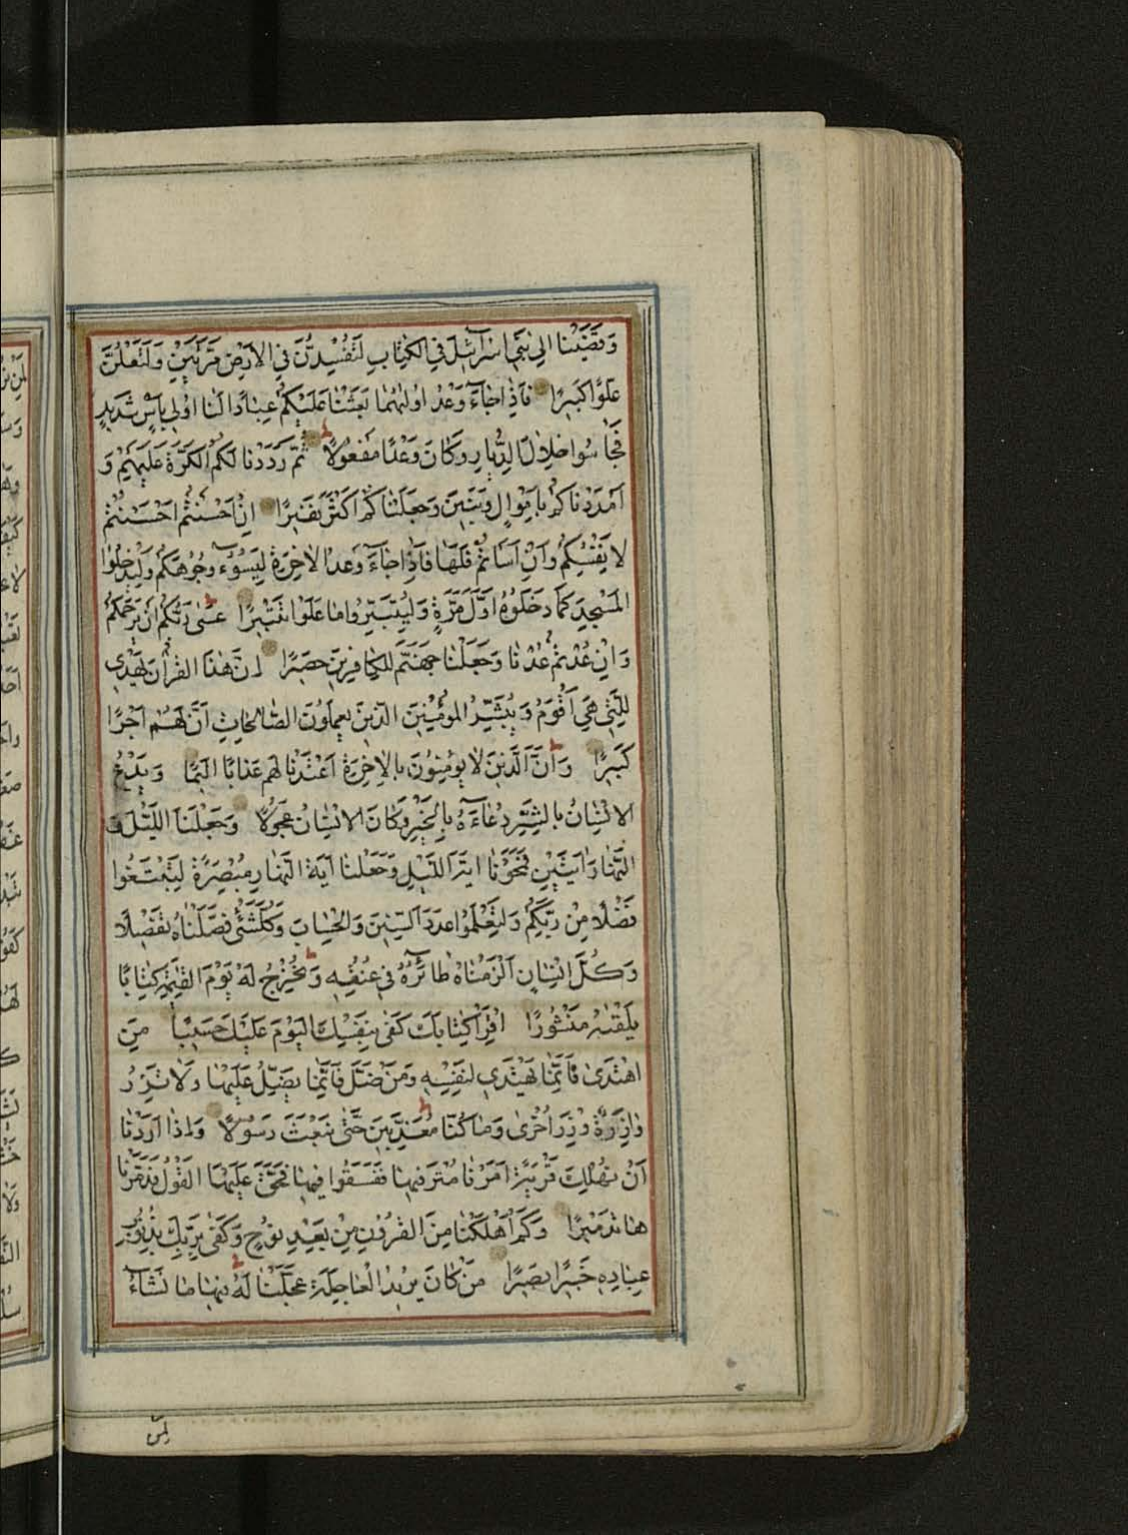 وَقَضَيْنا اِلى بَنى اِسْرآئيلَ فِى الْكِتابِ لَتُفْسِدُنَّ فِى الْاَرْضِ مَرَّتَيْنِ وَلَتَعْلُنَّ
عُلُوًّا كَبيرًا فَاِذا جآءَ وَعْدُ اُولٰيهُما بَعَثْنا عَلَيْكُمْ عِبادًا لَنا اُولى بَاْسٍ شَديدٍ
فَجاسُوا خِلالَ الدِّيارِ وَكانَ وَعْدًا مَفْعُولًا ثُمَّ رَدَدْنا لَكُمُ الْكَرَّةَ عَلَيْهِمْ وَ
اَمْدَدْناكُمْ بِاَمْوالٍ وَبَنينَ وَجَعَلْناكُمْ اَكْثَرَ نَفيرًا اِنْ اَحْسَنْتُمْ اَحْسَنْتُمْ
لِاَنْفُسِكُمْ وَاِنْ اَسَاْتُمْ فَلَها فَاِذا جآءَ وَعْدُ الْاٰخِرَةِ لِيَسُوؤُا وُجُوهَكُمْ وَلِيَدْخُلُوا
الْمَسْجِدَ كَما دَخَلُوهُ اَوَّلَ مَرَّةٍ وَلِيُتَبِّرُوا ما عَلَوْا تَتْبيرًا عَسٰى رَبُّكُمْ اَنْ يَرْحَمَكُمْ
وَاِنْ عُدْتُمْ عُدْنا وَجَعَلْنا جَهَنَّمَ لِلْكافِرينَ حَصيرًا اِنَّ هٰذَا الْقُرْاٰنَ يَهْدى
لِلَّتى هِىَ اَقْوَمُ وَيُبَشِّرُ الْمُؤْمِنينَ الَّذينَ يَعْمَلُونَ الصّالِحاتِ اَنَّ لَهُمْ اَجْرًا
كَبيرًا وَاَنَّ الَّذينَ لا يُؤْمِنُونَ بِالْاٰخِرَةِ اَعْتَدْنا لَهُمْ عَذابًا اَليمًا وَيَدْعُ
الْاِنْسانُ بِالشَّرِّ دُعآءَهُ بِالْخَيْرِ وَكانَ الْاِنْسانُ عَجُولًا وَجَعَلْنَا اللَّيْلَ وَ
النَّهارَ اٰيَتَيْنِ فَمَحَوْنا اٰيَةَ اللَّيْلِ وَجَعَلْنا اٰيَةَ النَّهارِ مُبْصِرَةً لِتَبْتَغُوا
فَضْلًا مِنْ رَبِّكُمْ وَلِتَعْلَمُوا عَدَدَ السِّنينَ وَالْحِسابَ وَكُلَّ شَىْءٍ فَصَّلْناهُ تَفْصيلًا
وَكُلَّ اِنْسانٍ اَلْزَمْناهُ طآئِرَهُ فى عُنُقِهِ وَنُخْرِجُ لَهُ يَوْمَ الْقِيٰمَةِ كِتابًا
يَلْقٰيهُ مَنْشُورًا اِقْرَاْ كِتابَكَ كَفٰى بِنَفْسِكَ الْيَوْمَ عَلَيْكَ حَسيبًا مَنِ
اهْتَدٰى فَاِنَّما يَهْتَدى لِنَفْسِهِ وَمَنْ ضَلَّ فَاِنَّما يَضِلُّ عَلَيْها وَلا تَزِرُ
وازِرَةٌ وِزْرَ اُخْرٰى وَما كُنّا مُعَذِّبينَ حَتّٰى نَبْعَثَ رَسُولًا وَاِذا اَرَدْنا
اَنْ نُهْلِكَ قَرْيَةً اَمَرْنا مُتْرَفيها فَفَسَقُوا فيها فَحَقَّ عَلَيْهَا الْقَوْلُ فَدَمَّرْنا
ها تَدْميرًا وَكَمْ اَهْلَكْنا مِنَ الْقُرُونِ مِنْ بَعْدِ نُوحٍ وَكَفٰى بِرَبِّكَ بِذُنُوبِ
عِبادِهِ خَبيرًا بَصيرًا مَنْ كانَ يُريدُ الْعاجِلَةَ عَجَّلْنا لَهُ فيها ما نَشآءُ
لِمَنْ